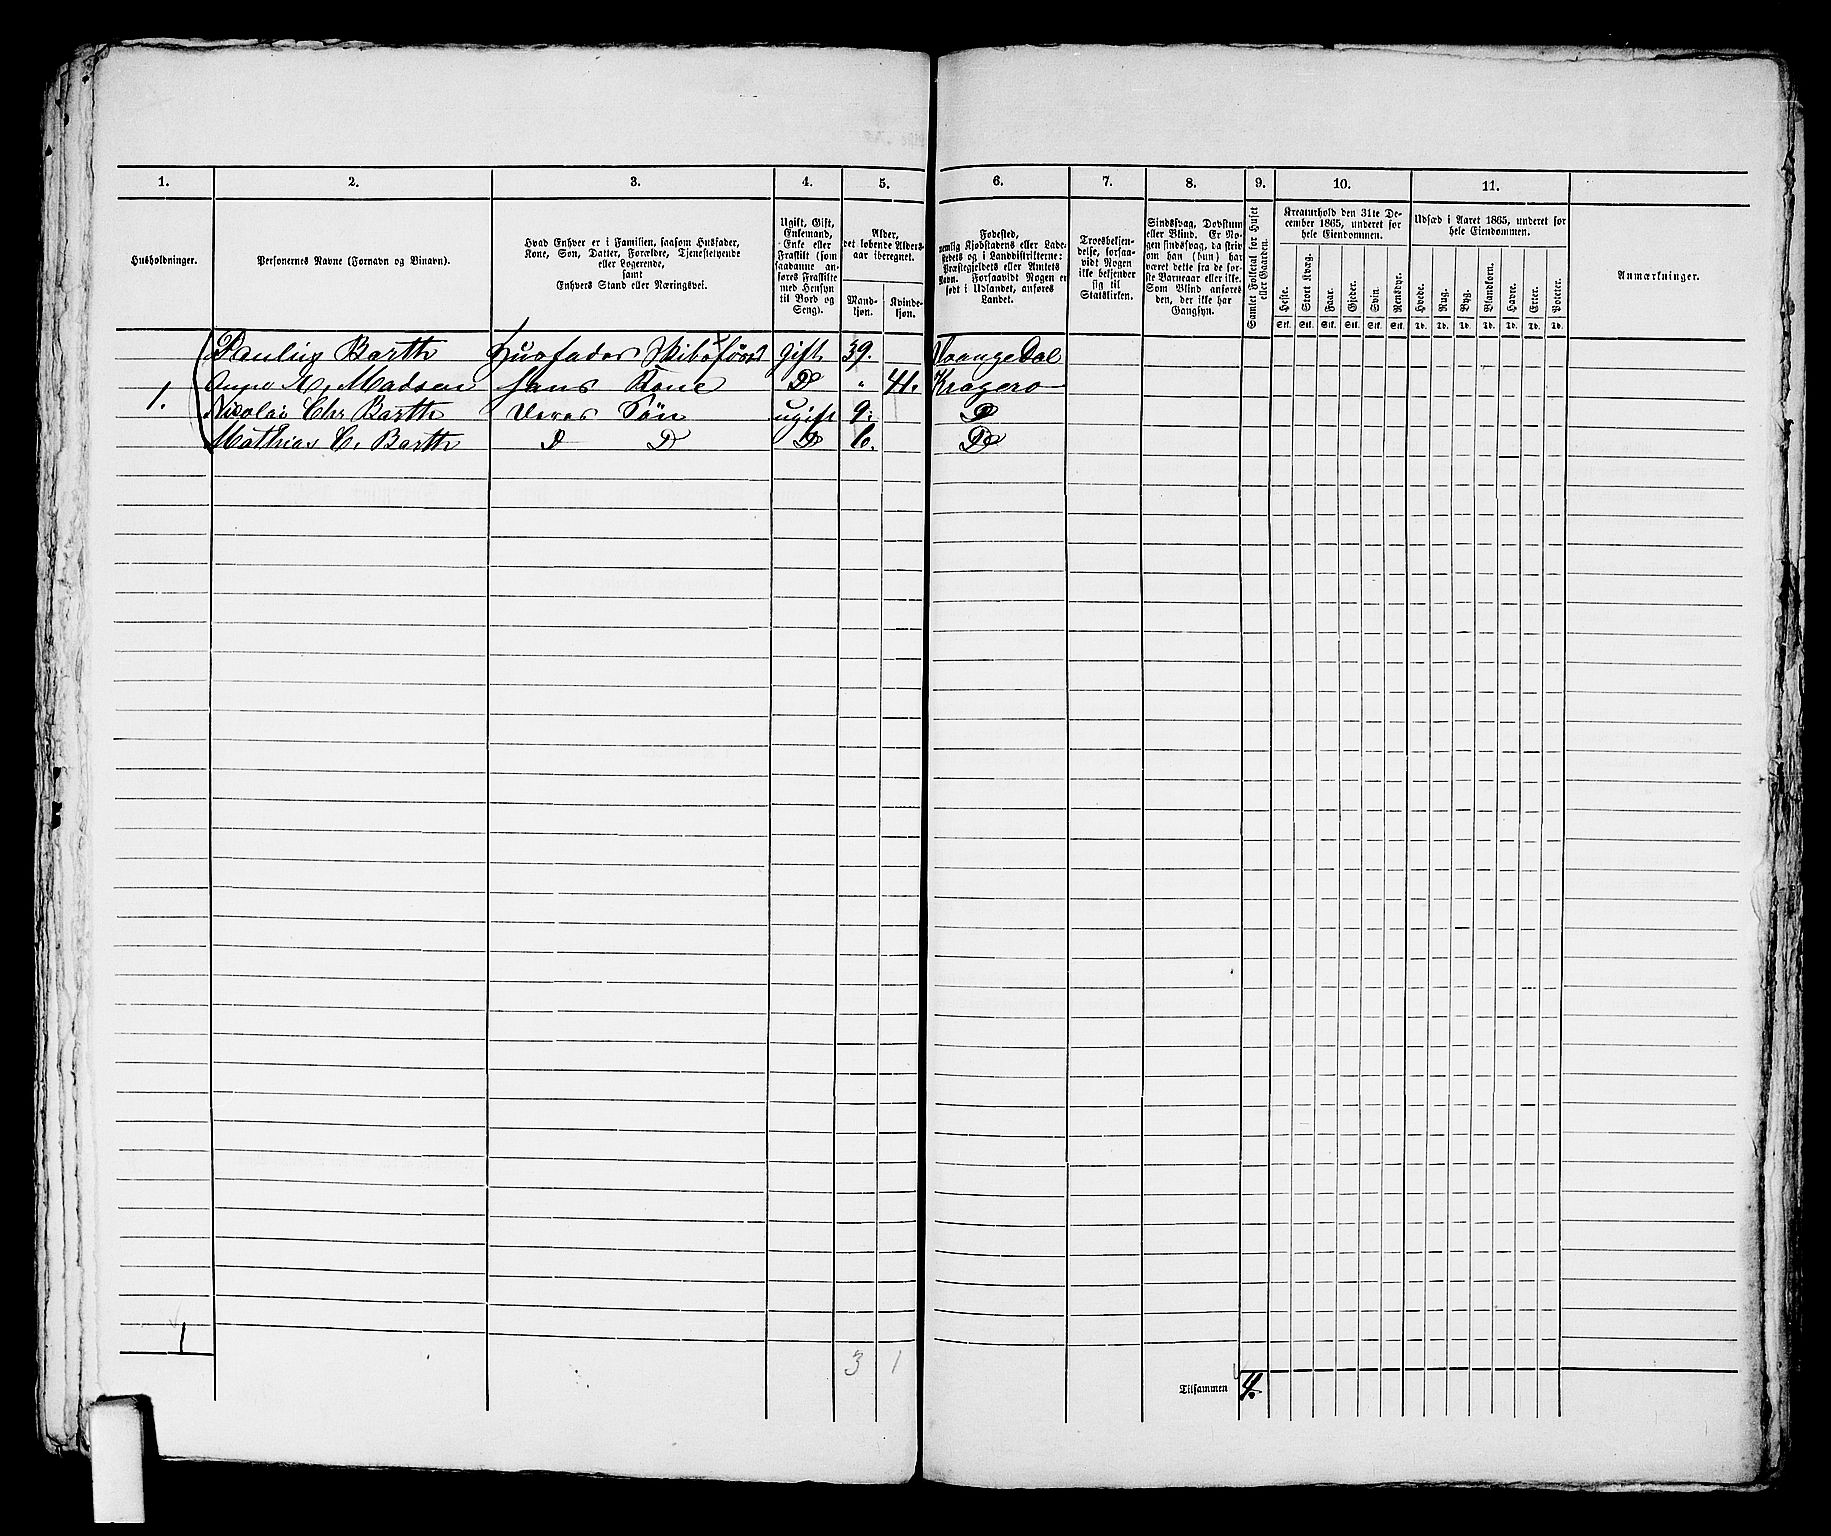 1. 2. 3. 4. 5. 6. 7. 8. 9. 10. 11.
Husholdninger.
Personernes Navne (Fornavn og Binavn).
Hvad Enhver er i Familien, saasom Husfader,
Kone, Søn, Datter, Forældre, Tjenestetyende
eller Logerende,
samt
Enhvers Stand eller Næringsvei.
Ugift, Gift,
Enkemand,
Enke eller
Fraskilt (som
saadanne anføres
Fraskilte
med Hensyn
til Bord og
Seng).
Alder,
det løbende Alders-
aar iberegnet.
Mand-
kjøn.
Kvinde-
kjøn.
Fødested,
nemlig Kjøbstadens eller Lade-
stedets og i Landdistrikterne:
Præstegjeldets eller Amtets
Navn. Forsaavidt Nogen er
født i Udlandet, anføres
Landet.
Troesbekjen-
delse, forsaa-
vidt Nogen
ikke bekjender
sig til
Statskirken.
Sindssvag, Døvstum
eller Blind. Er No-
gen sindssvag, da skriv
om han (hun) har
været dette fra de før-
ste Barneaar eller ikke.
Som Blind anføres
den, der ikke har
Gangsyn.
Samlet Folketal for Huset
eller Gaarden.
Kreaturhold den 31te De-
cember 1865, underet for
hele Eiendommen.
Heste. Stort Kvæg. Faar. Gjeder. Svin. Rensdyr.
Stk. Stk. Stk. Stk. Stk. Stk.
Udsæd i Aaret 1865, underet for
hele Eiendommen.
Hvede. Rug. Byg. Blandkorn. Havre. Erter. Poteter.
Td. Td. Td. Td. Td. Td. Td.
Anmærkninger.
Paulus Barth Husfader Skibsfører gift 39. Drangedal
Anne M. Madsen hans Kone D " 41. Kragerø
1. Nicolai Chr Barth Deres Søn ugift 9. D
Mathias C. Barth D D D 6. D
1
3 1
Tilsammen 4.